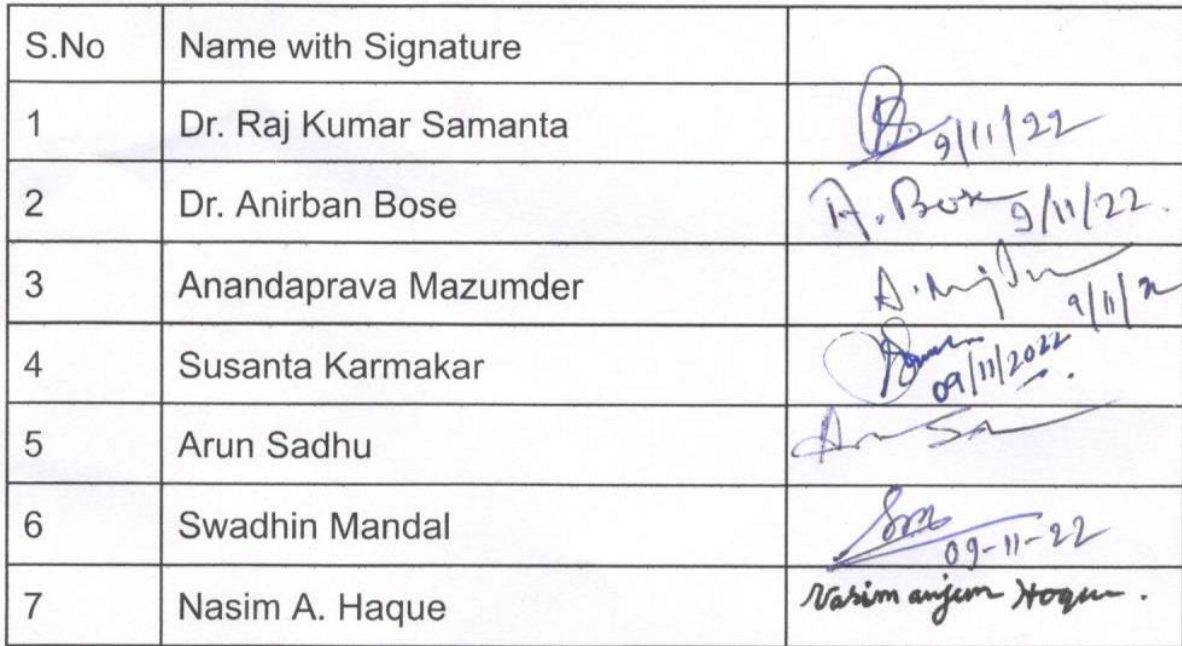 S.No Name with Signature
1 Dr. Raj Kumar Samanta 9/11/22
2 Dr. Anirban Bose A. Bose 9/11/22.
3 Anandaprava Mazumder 9/11/22
4 Susanta Karmakar 09/11/2022
5 Arun Sadhu
6 Swadhin Mandal 09-11-22
7 Nasim A. Haque Nasim anjum Hoque.